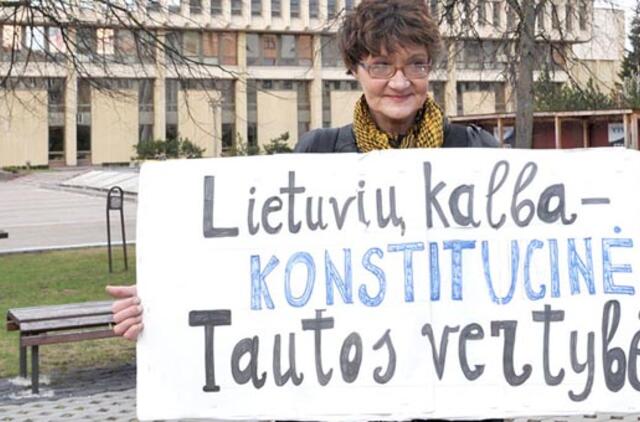 Lietuvių kalba –
KONSTITUCINĖ
Tautos vertybė